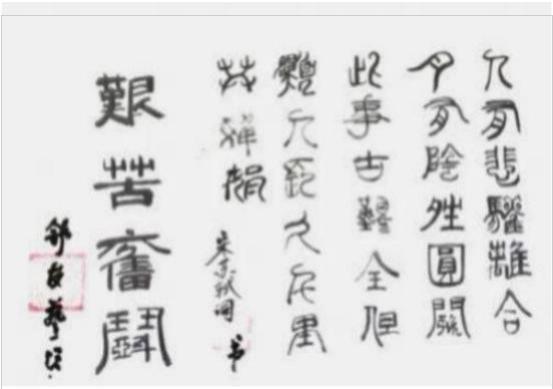 人有悲驩離合
月有陰夝圓闕
此事古難全但
願人長久千里
共嬋娟
書
艱苦奮鬥